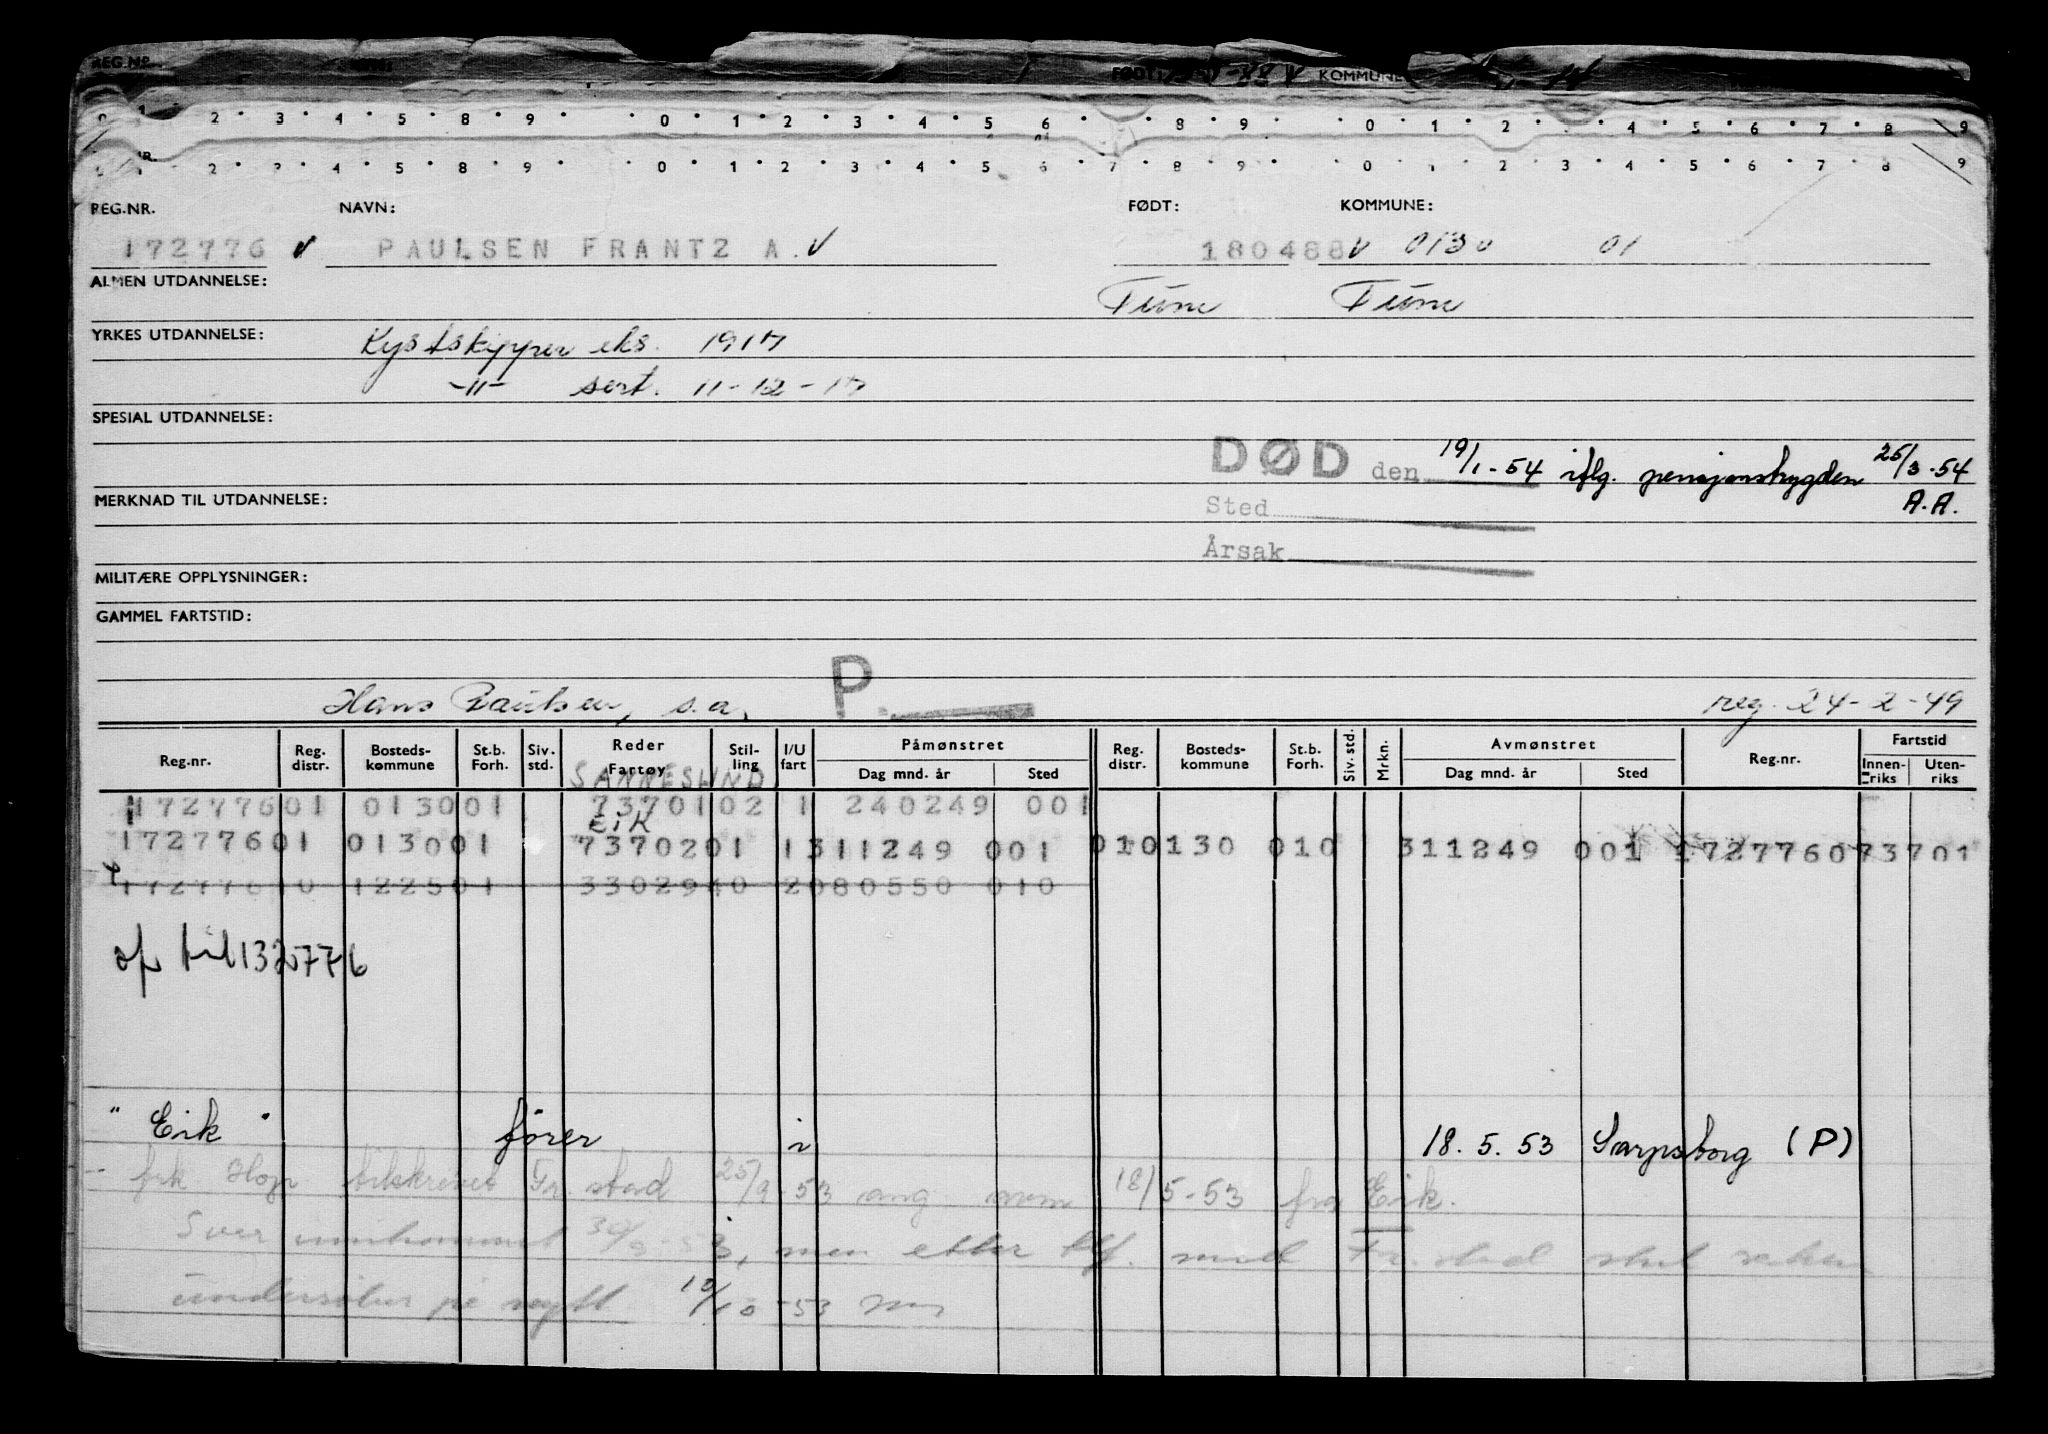 REG.NR. FØDT: KOMMUNE
2 3 4 5 8 9 0 1 2 3 4 5 6 8 9 0 1 2 3 4 5 6 7 8 9
2 3 4 5 8 9 0 1 2 3 4 5 6 7 8 9 0 1 2 3 4 5 6 7 8 9
REG.NR. NAVN: FØDT: KOMMUNE:
172776 V PAULSEN FRANTZ A. V 180488 V 0130 01
ALMEN UTDANNELSE: Tune Tune
YRKES UTDANNELSE: Kystskipper eks. 1917
-"- sert. 11-12-17
SPESIAL UTDANNELSE:
DØD den 19/1-54 iflg. pensjonstrygden 25/3-54
MERKNAD TIL UTDANNELSE: Sted A.A.
Årsak
MILITÆRE OPPLYSNINGER:
GAMMEL FARTSTID:
Hans Paulsen, s.a. P. reg. 24-2-49
Reg.nr. Reg. distr. Bosteds- kommune St.b. Forh. Siv. std. Reder Fartøy Stil- ling I/U fart Påmønstret Dag mnd. år Sted Reg. distr. Bosteds- kommune St.b. Forh. Siv. std. Mrkn. Avmønstret Dag mnd. år Sted Reg.nr. Fartstid Innen- riks Uten- riks
SANNESUND
17277601 013001 7370102 1 240249 001
EIK
17277601 013001 7370201 1311249 001 010130 010 311249 001 172776073701
17277610 122501 3302940 2080550 010
of til 132776
"Eik" fører i 18.5.53 Sarpsborg (P)
- frk. Hop tilskrevet Fr.stad 25/9-53 ang. avm 18/5-53 fra Eik.
Svar innkommet 30/9-53, men etter tlf. med Fr.stad skal saken
undersøkes på nytt 10/10-53